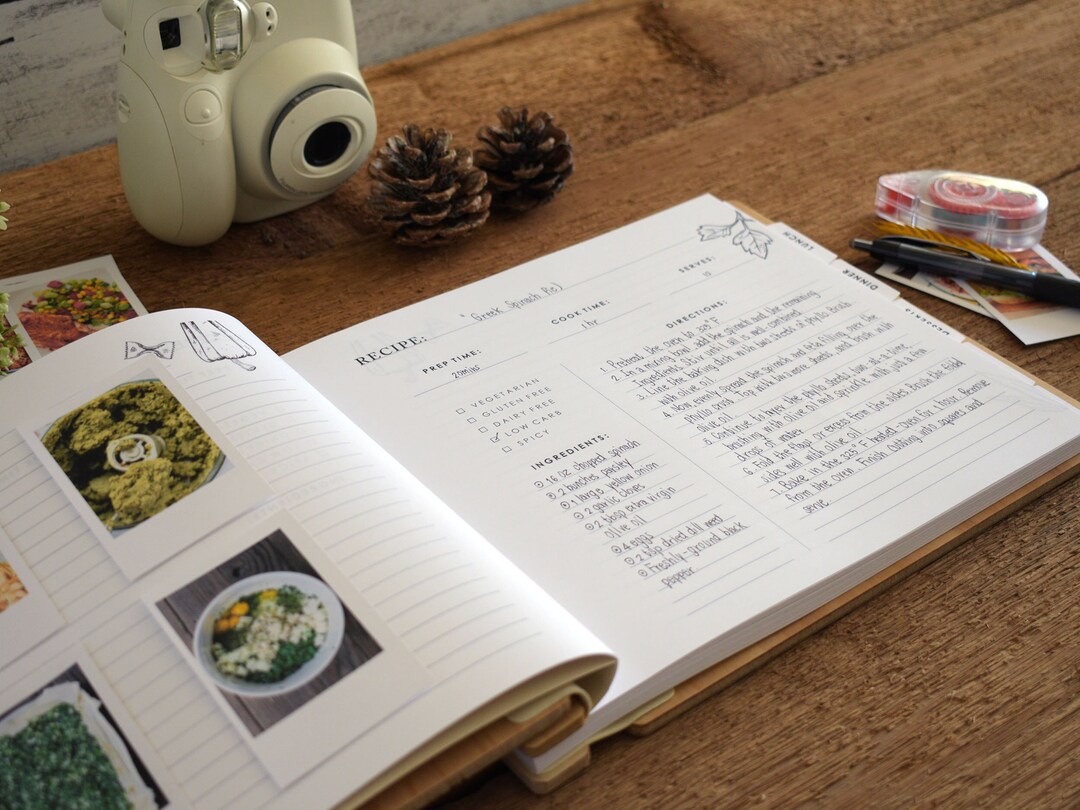 LUNCH
DINNER
DESSERTS
RECIPE: Greek Spinach Pie
PREP TIME: 20mins
COOK TIME: 1 hr
SERVES: 10
VEGETARIAN
GLUTEN FREE
DAIRY FREE
LOW CARB
SPICY
INGREDIENTS:
16 oz chopped spinach
2 bunches parsley
1 large yellow onion
2 garlic cloves
2 tbsp extra virgin
olive oil
4 eggs
2 tsp dried dill weed
Freshly-ground black
pepper
DIRECTIONS:
1. Preheat the oven to 325°F
2. In a mixing bowl add the spinach and the remaining
ingredients. Stir until all is well-combined
3. Line the baking dish with two sheets of phyllo. Brush
with olive oil
4. Now evenly spread the spinach and feta filling over the
phyllo crust. Top with two more sheets, and brush with
olive oil
5. Continue to layer the phyllo sheets two at a time,
brushing with olive oil and sprinkle with just a few
drops of water
6. Fold the flaps or excess from the sides. Brush the folded
sides well with olive oil
7. Bake in the 325°F heated-oven for 1 hour. Remove
from the oven. Finish cutting into squares and
serve.